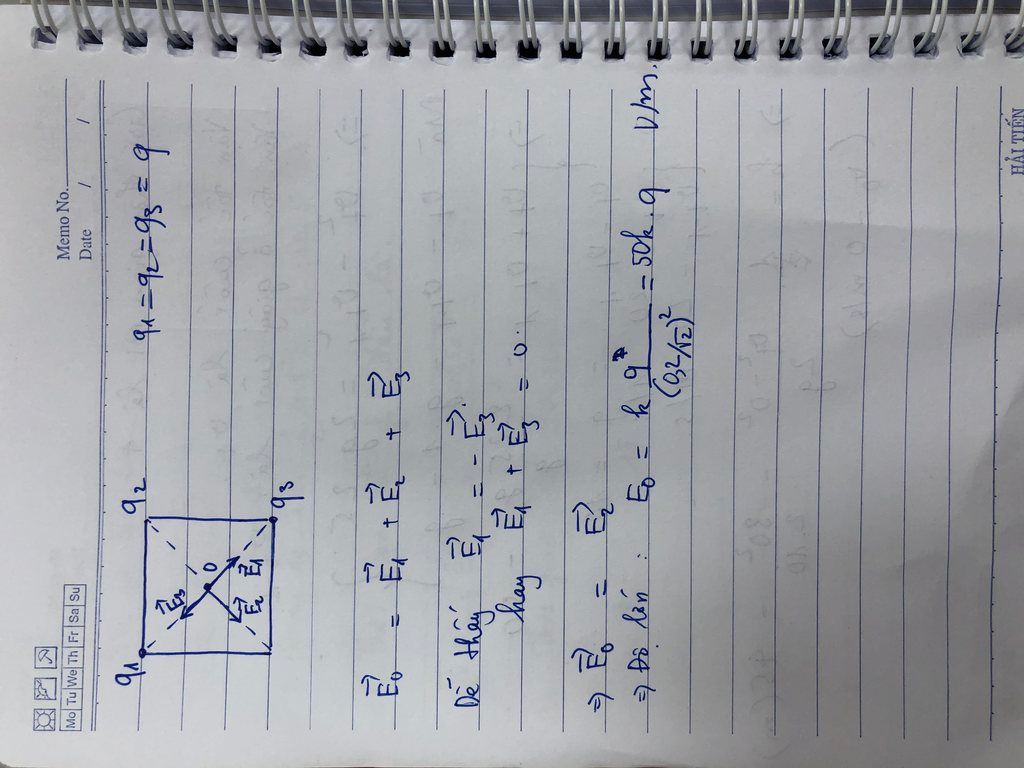 Memo No.
Date / /
Mo Tu We Th Fr Sa Su
q1 q2
q1 = q2 = q3 = q
E₃⃗
O
E₂⃗ E₁⃗
q3
E₀⃗ = E₁⃗ + E₂⃗ + E₃⃗
Dễ thấy E₁⃗ = - E₃⃗.
hay E₁⃗ + E₃⃗ = 0.
⇒ E₀⃗ = E₂⃗
⇒ Độ lớn : E₀ = k q / (0,2-√2)² = 50k. q V/m.
HẢI TIẾN